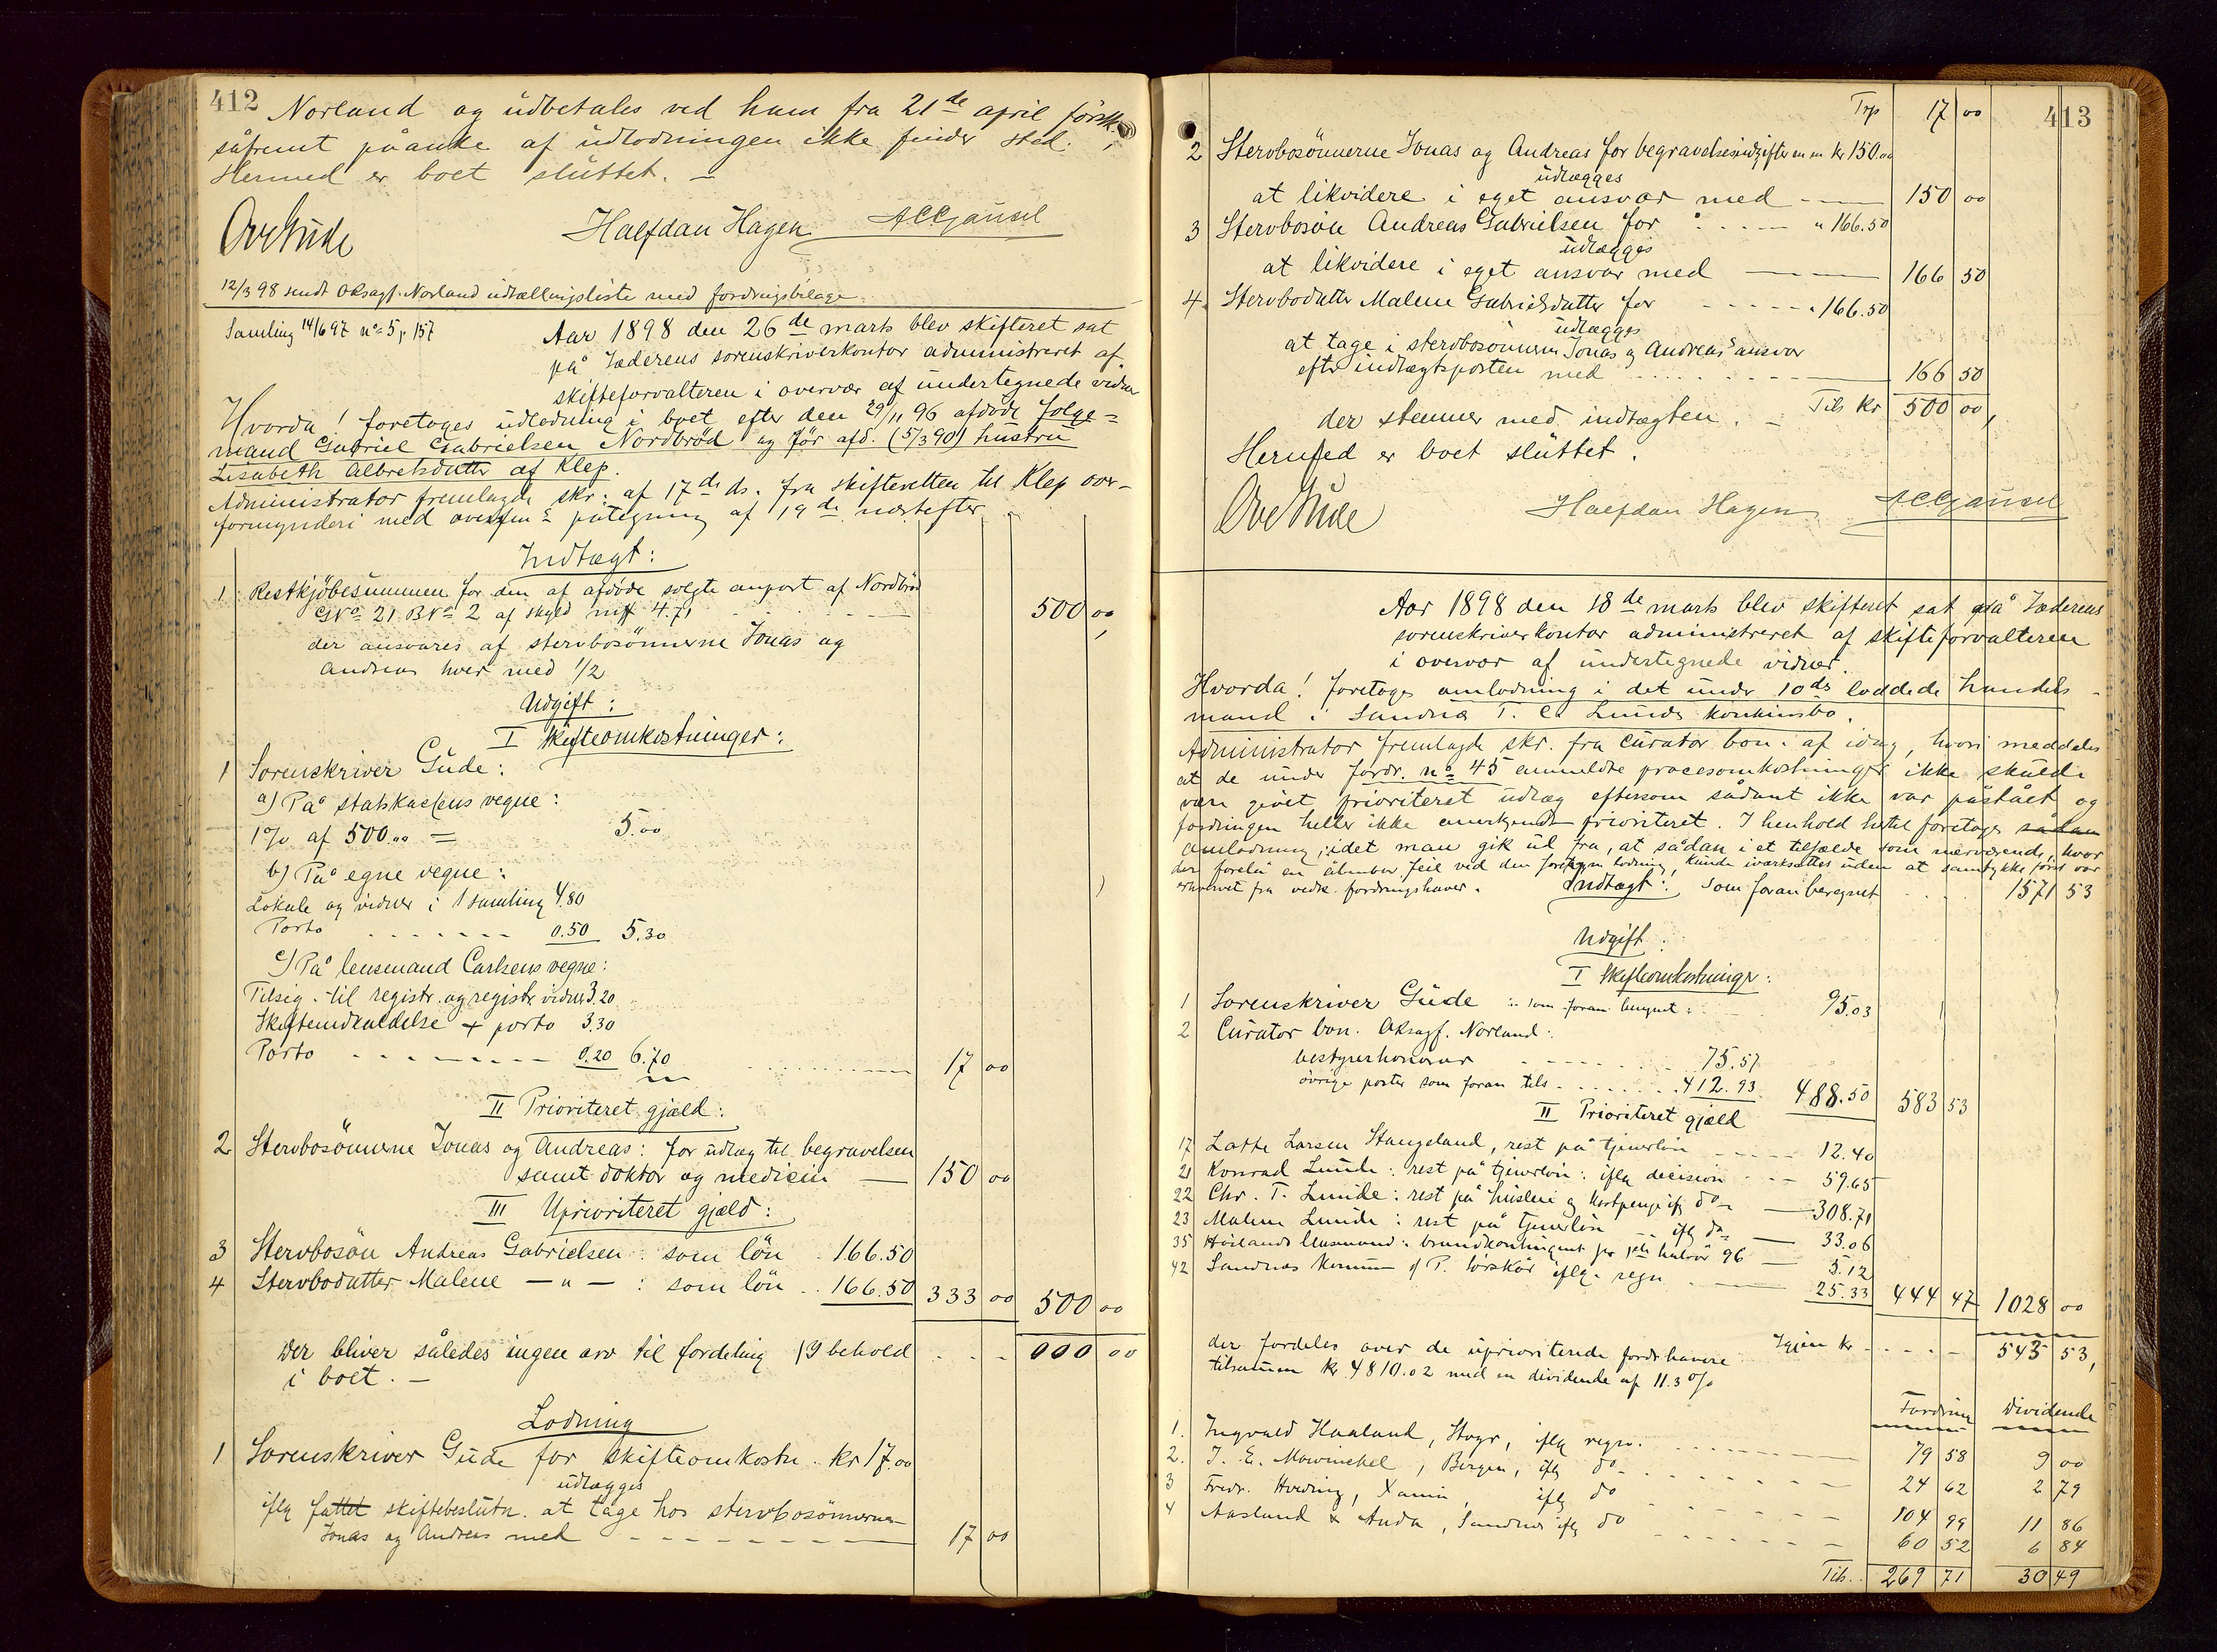 412
Norland og udbetales ved ham fra 21de april förstk.,
såfremt påanke af udlodningen ikke finder sted.
Hermed er boet sluttet. —
Ove Gude Halfdan Hagen ACGjausel
12/3 98 sendt Oksagf. Norland udtællingsliste med fordringsbilage.
Samling 14/6 97 no 5, p 157
Aar 1898 den 26de marts blev skifteret sat
på Jæderens sorenskriverkontor administreret af
skifteforvalteren i overvær af undertegnede vidner
Hvorda! foretoges udlodning i boet efter den 29/11 96 afdöde folge=
mand Gabriel Gabrielsen Nordbröd og för afd. (5/3 90) hustru
Lisabeth Albretsdatter af Klep.
Administrator fremlagde skr. af 17de ds. fra skifteretten til Klep over-
formynderi med overfms påtegning af 19de næstefter
Indtægt:
1 Restkjöbesummen for den af afdöde solgte anpart af Nordbröd
GNo 21 BNo 2 af skyld mk 4.71 500 00,
der ansvares af stervbosönnerne Jonas og
Andreas hver med 1/2
Udgift:
I Skifteomkostninger:
1 Sorenskriver Gude:
a) På statskassens vegne:
1% af 500.00 = 5.00
b) På egne vegne:
Lokale og vidner i 1 samling 4.80
Porto 0.50 5.30
c) På lensmand Carlsens vegne:
Tilsig. til registr. og registr. vidner 3.20
Skifteindkaldelse + porto 3.30
Porto 0.20 6.70 17 00
II Prioriteret gjæld:
2 Stervbosönnerne Jonas og Andreas: for udlæg til begravelsen
samt doktor og medicin — 150 00
III Uprioriteret gjæld:
3 Stervbosön Andreas Gabrielsen: som lön 166.50
4 Stervbodatter Malene — " — : som lön 166.50 333 00 500 00
Der bliver således ingen arv til fordeling i behold 000 00
i boet. —
Lodning
1 Sorenskriver Gude for skifteomkostn. kr 17.00
udlægges
iflg fattet skiftebeslutn. at tage hos stervbosönnerne
Jonas og Andreas med 17 00
413
Trp 17 00
2 Stervbosönnerne Jonas og Andreas for begravelsesudgifter m m kr 150.00
udlægges
at likvidere i eget ansvar med — 150 00
3 Stervbosön Andreas Gabrielsen for " 166.50
udlægges
at likvidere i eget ansvar med — 166 50
4. Stervbodatter Malene Gabrielsdatter for " 166.50
udlægges
at tage i stervbosönnerne Jonas og Andreas's ansvar
efter indtægtsposten med 166 50
Tils kr 500 00,
der stemmer med indtægten. —
Hermed er boet sluttet.
Ove Gude Halfdan Hagen ACGjausel
Aar 1898 den 18de marts blev skifteret sat på Jæderens
sorenskriverkontor administreret af skifteforvalteren
i overvær af undertegnede vidner.
Hvorda! foretoges omlodning i det under 10 ds loddede handels-
mand i Sandnæs T. C. Lunds konkursbo.
Administrator fremlagde skr. fra curator bon. af idag, hvori meddeles
at de under fordr. no 45 anmeldte procesomkostninger ikke skulde
være givet prioriteret udlæg eftersom sådant ikke var påstået og
fordringen heller ikke anerkjendt prioriteret. I henhold hertil foretoges sådan
omlodning, idet man gik ud fra, at sådan i et tilfælde som nærværende, hvor
der forelå en åbenbar feil ved den foretagne lodning, kunde iværksættes uden at samtykke först var
erhvervet fra vedk. fordringshaver.
Indtægt: Som foran beregnet 1571 53
Udgift:
I Skifteomkostninger:
1 Sorenskriver Gude: som foran beregnet: 95.03
2 Curator bon. Oksagf. Norland:
bestyrerhonorar 75.57
övrige poster som foran tils 412.93 488.50 583 53
II Prioriteret gjæld
17 Lotte Larsen Stangeland, rest på tjenerlön 12.40
21 Konrad Lunde: rest på tjenerlön: iflg decision 59.65
22 Chr. T. Lunde: rest på husleie og kostpenge iflg do 308.71
23 Malene Lunde: rest på tjenerlön iflg do 33.06
35 Höilands lensmand: brandkontingent for 1ste halvår 96 — 5.12
42 Sandnæs kommune v/ P. Torskår iflg. regn 25.33 444 47 1028 00
Igjen kr 543 53,
der fordeles over de uprioriterede fordr.havere
tilsammen kr. 4810.02 med en dividende af 11.3%
Fordring Dividende
1. Ingvald Haaland, Stvgr, iflg regn. 79 58 9 00
2. J. E. Mowinckel, Bergen, iflg do 24 62 2 79
3 Fredr. Hviding, Xania, iflg do 104 99 11 86
4 Aasland & Auda, Sandnæs iflg do 60 52 6 84
Tils. 269 71 30 49